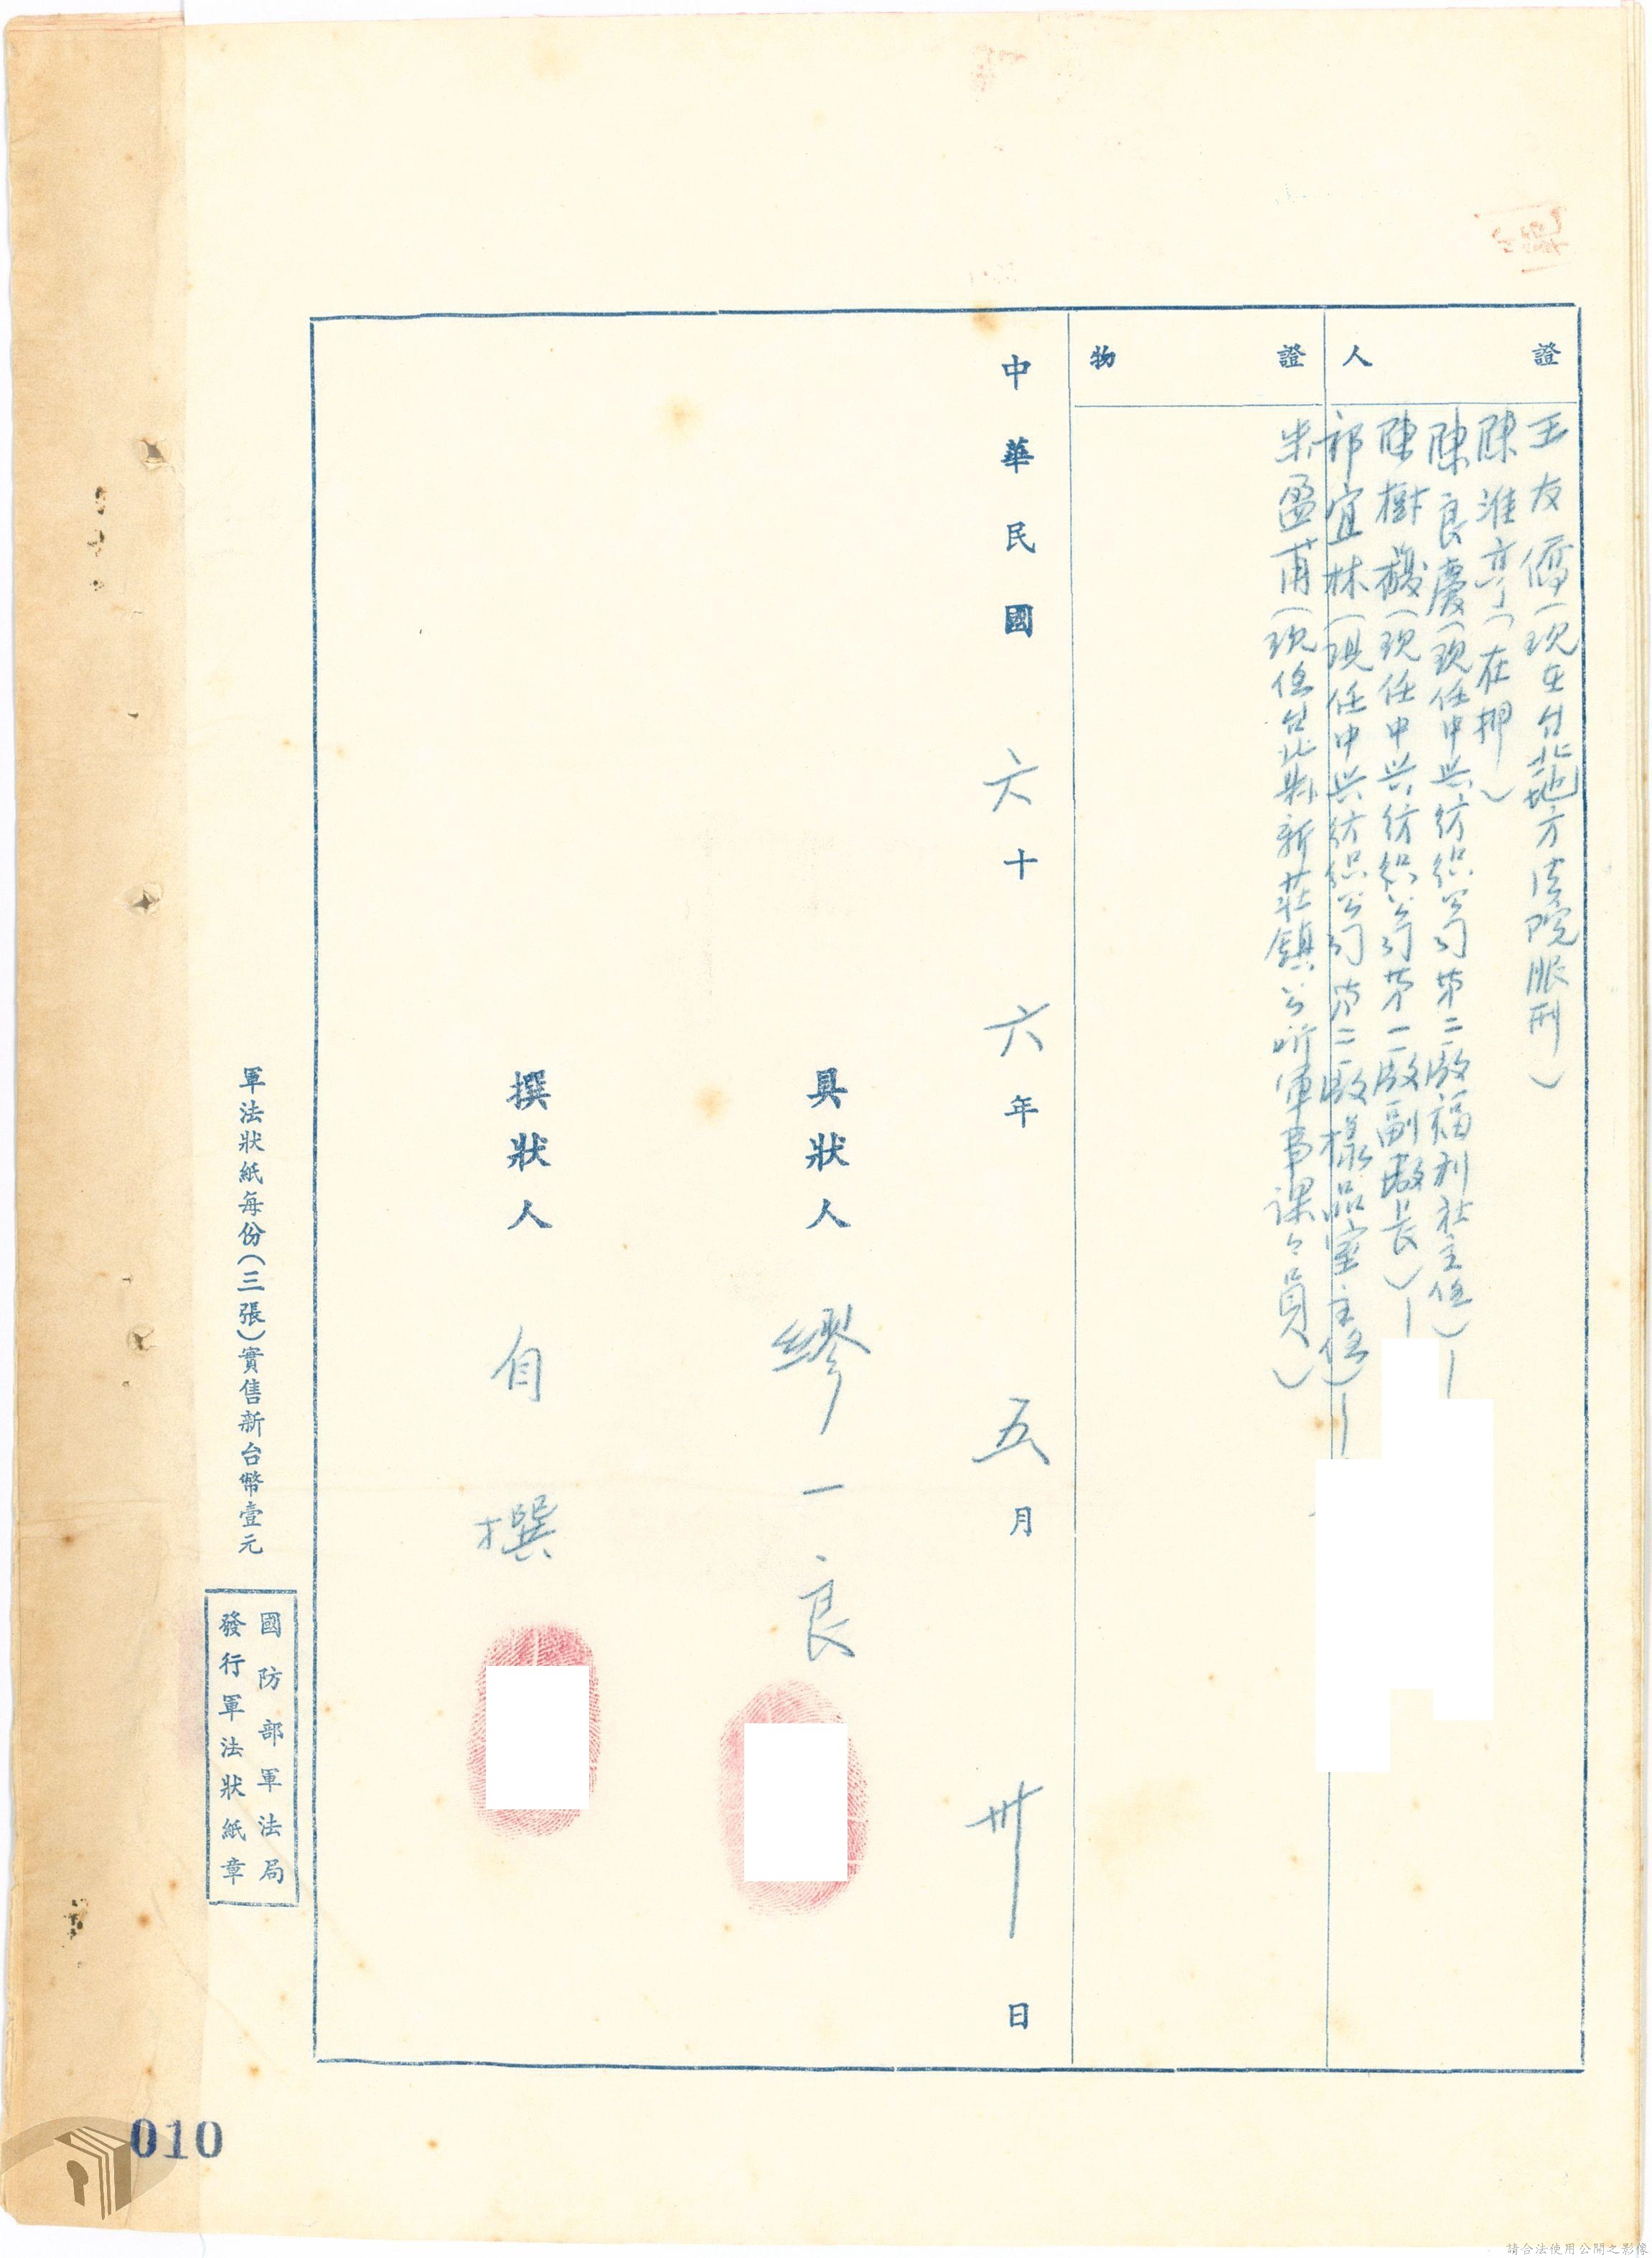 證人
王友僑（現在台北地方法院服刑）
陳淮亭（在押）
陳良慶（現任中兴紡织公司第二廠福利社主任）—
陳樹機（現任中兴紡织公司第二廠副廠長）—
祁宜林（現任中兴紡织公司第二廠樣品室主任）—
朱盈甫（現任台北縣新莊鎮公所軍事課々員）
證物
中華民國六十六年五月卅日
具狀人 繆一良
撰狀人 自撰
軍法狀紙每份（三張）實售新台幣壹元
國防部軍法局
發行軍法狀紙章
010
請合法使用公開之影像